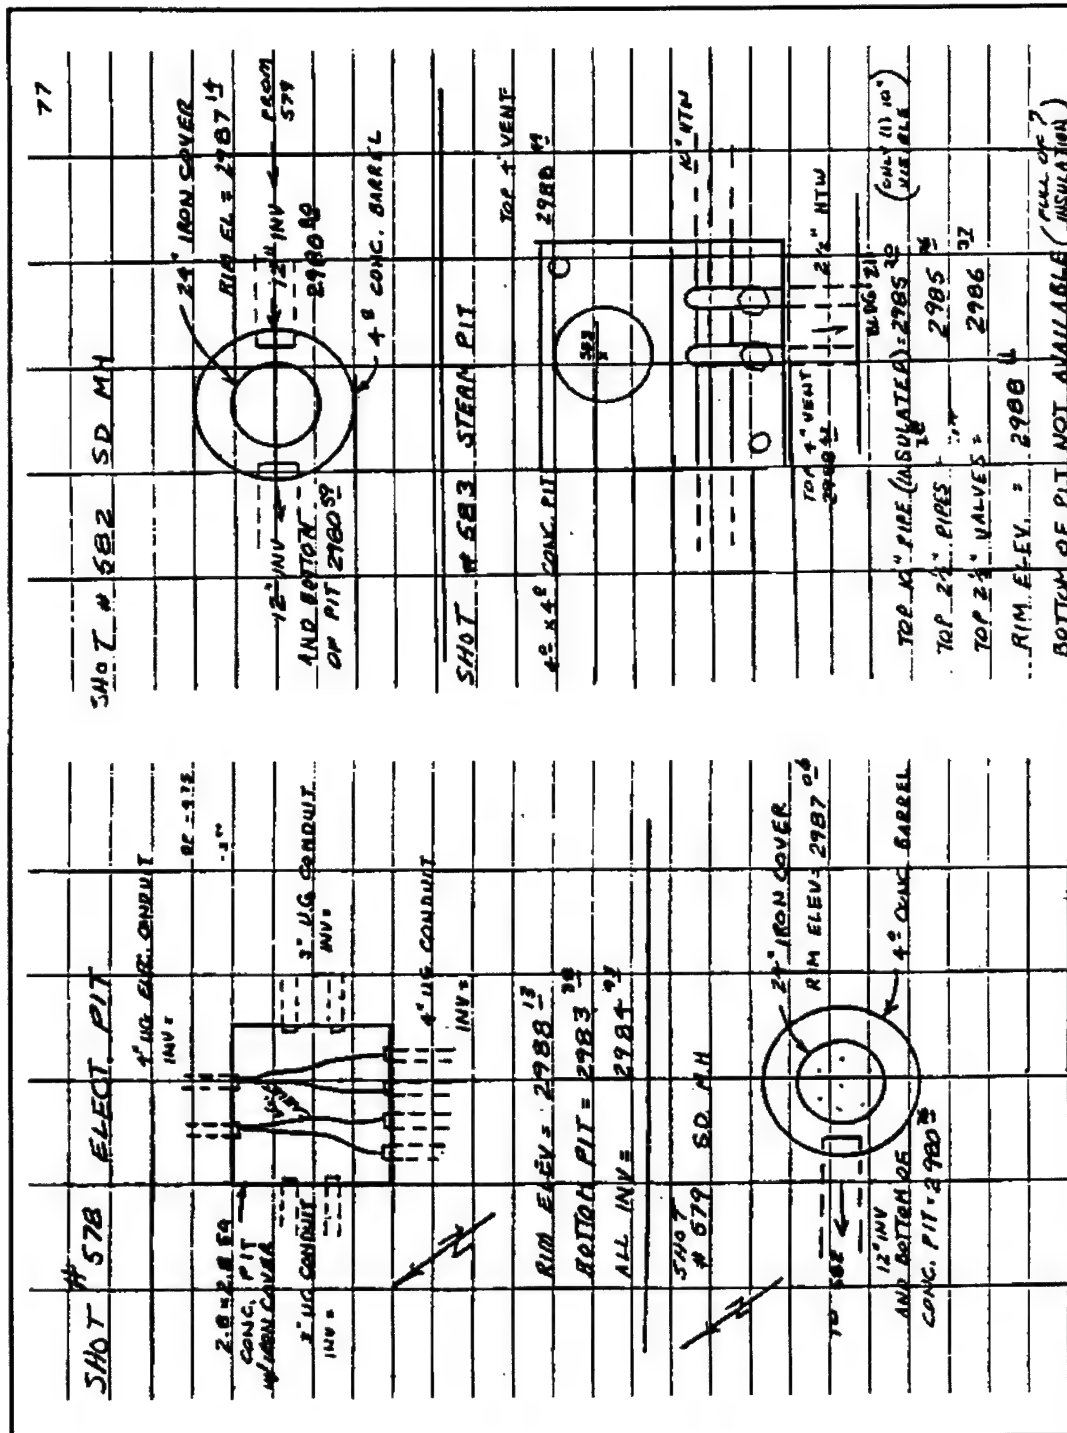 77
SHOT # 578 ELECT. PIT
4" UG ELEC. CONDUIT
INV =
CONC. PIT
W/IRON COVER
3" UG CONDUIT
INV =
3" U.G. CONDUIT
INV =
4" UG CONDUIT
INV =
RIM ELEV = 2988 13
BOTTOM PIT = 2983
ALL INV = 2984
SHOT
# 579 SD MH
24" IRON COVER
RIM ELEV = 2987 06
4º CONC. BARREL
TO 582
12" INV
AND BOTTOM OF
CONC. PIT = 2980
SHOT # 582 SD MH
24" IRON COVER
RIM EL = 2987 14
FROM
579
12" INV
2980 60
4º CONC. BARREL
12" INV
AND BOTTOM
OF PIT 2980 59
SHOT # 583 STEAM PIT
4º x 4º CONC. PIT
TOP 4" VENT
2988
583
10" HTW
TOP 4" VENT
2½" HTW
BLDG 211
TOP 10" PIPE (INSULATED) = 2985 20
(ONLY (1) 10"
VISIBLE)
TOP 2½" PIPES = 2985
TOP 2½" VALVES = 2986 37
RIM ELEV. = 2988 11
BOTTOM OF PIT NOT AVAILABLE (FULL OF ?
INSULATION)